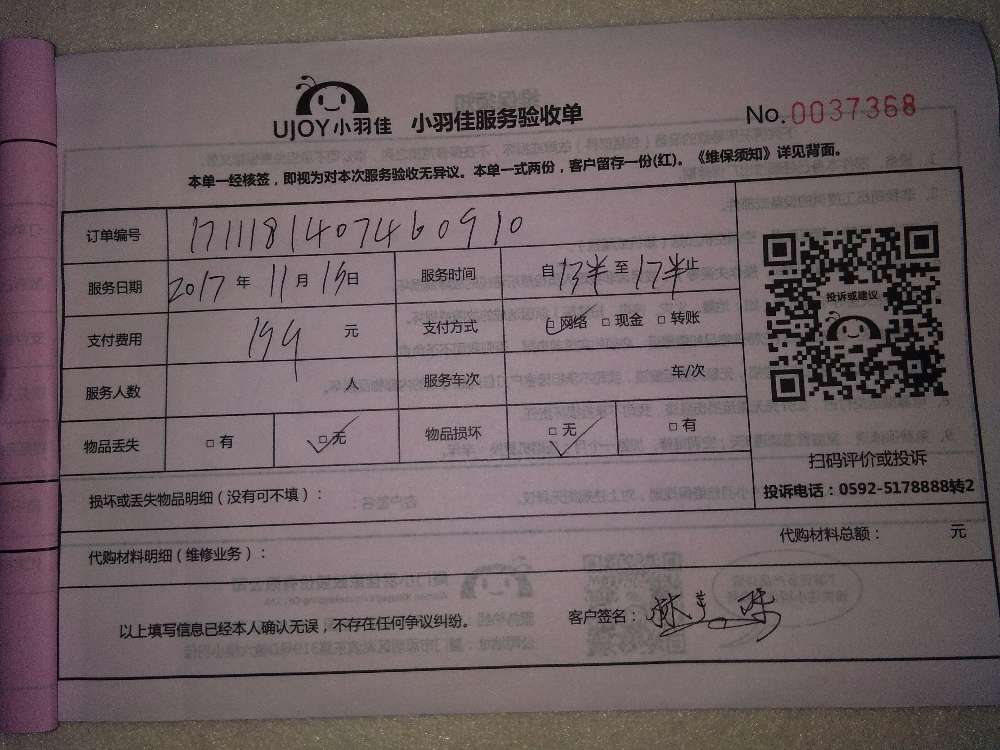 UJOY小羽佳 小羽佳服务验收单 No.0037368
本单一经核签，即视为对本次服务验收无异议。本单一式两份，客户留存一份(红)。《维保须知》详见背面。
订单编号 1711181407460910
服务日期 2017年11月19日 服务时间 自13半至17半止
支付费用 199元 支付方式 □网络 □现金 □转账
投诉或建议
服务人数 人 服务车次 车/次
物品丢失 □有 □无 物品损坏 □无 □有
扫码评价或投诉
损坏或丢失物品明细（没有可不填）：
投诉电话：0592-5178888转2
代购材料明细（维修业务）： 代购材料总额： 元
以上填写信息已经本人确认无误，不存在任何争议纠纷。 客户签名：